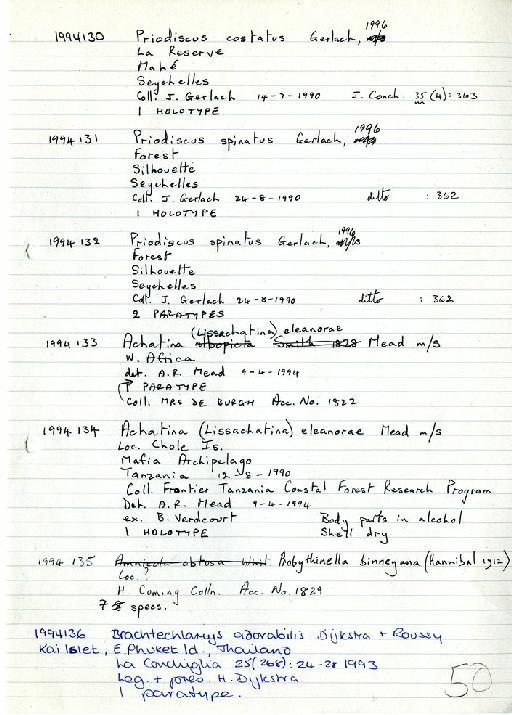 1994130 Priodiscus costatus Gerlach, 1996
La Reserve
Mahé
Seychelles
Coll. J. Gerlach 14-7-1990 J. Conch. 35(4): 363
1 HOLOTYPE
1994 131 Priodiscus spinatus Gerlach, 1996
Forest
Silhouette
Seychelles
Coll. J. Gerlach 24-8-1990 ditto : 362
1 HOLOTYPE
1994 132 Priodiscus spinatus Gerlach, 1996 m/s
Forest
Silhouette
Seychelles
Coll. J. Gerlach 24-8-1990 ditto : 362
2 PARATYPES
(Lissachatina) eleanorae
1994 133 Achatina albopicta Smith 1878 Mead m/s
W. Africa
det. A.R. Mead 9-4-1994
PARATYPE
Coll. MRS DE BURGH Acc. No. 1822
1994 134 Achatina (Lissachatina) eleanorae Mead m/s
Loc. Chole Is.
Mafia Archipelago
Tanzania 12-8-1990
Coll. Frontier Tanzania Coastal Forest Research Program
Det. A.R. Mead 9-4-1994
ex. B. Verdcourt Body parts in alcohol
1 HOLOTYPE Shell dry
1994 135 Amnicola obtusa Whit Probythinella binneyana (Hannibal 1912)
Loc. ?
H Coming Colln. Acc. No. 1829
7 8 specs.
1994136 Brachtechlamys adorabilis Dijkstra + Roussy
Kai Islet, E Phuket Id., Thailand
La Conchiglia 25(268): 24-28 1993
Leg. + pres. H. Dijkstra
1 paratype.
50